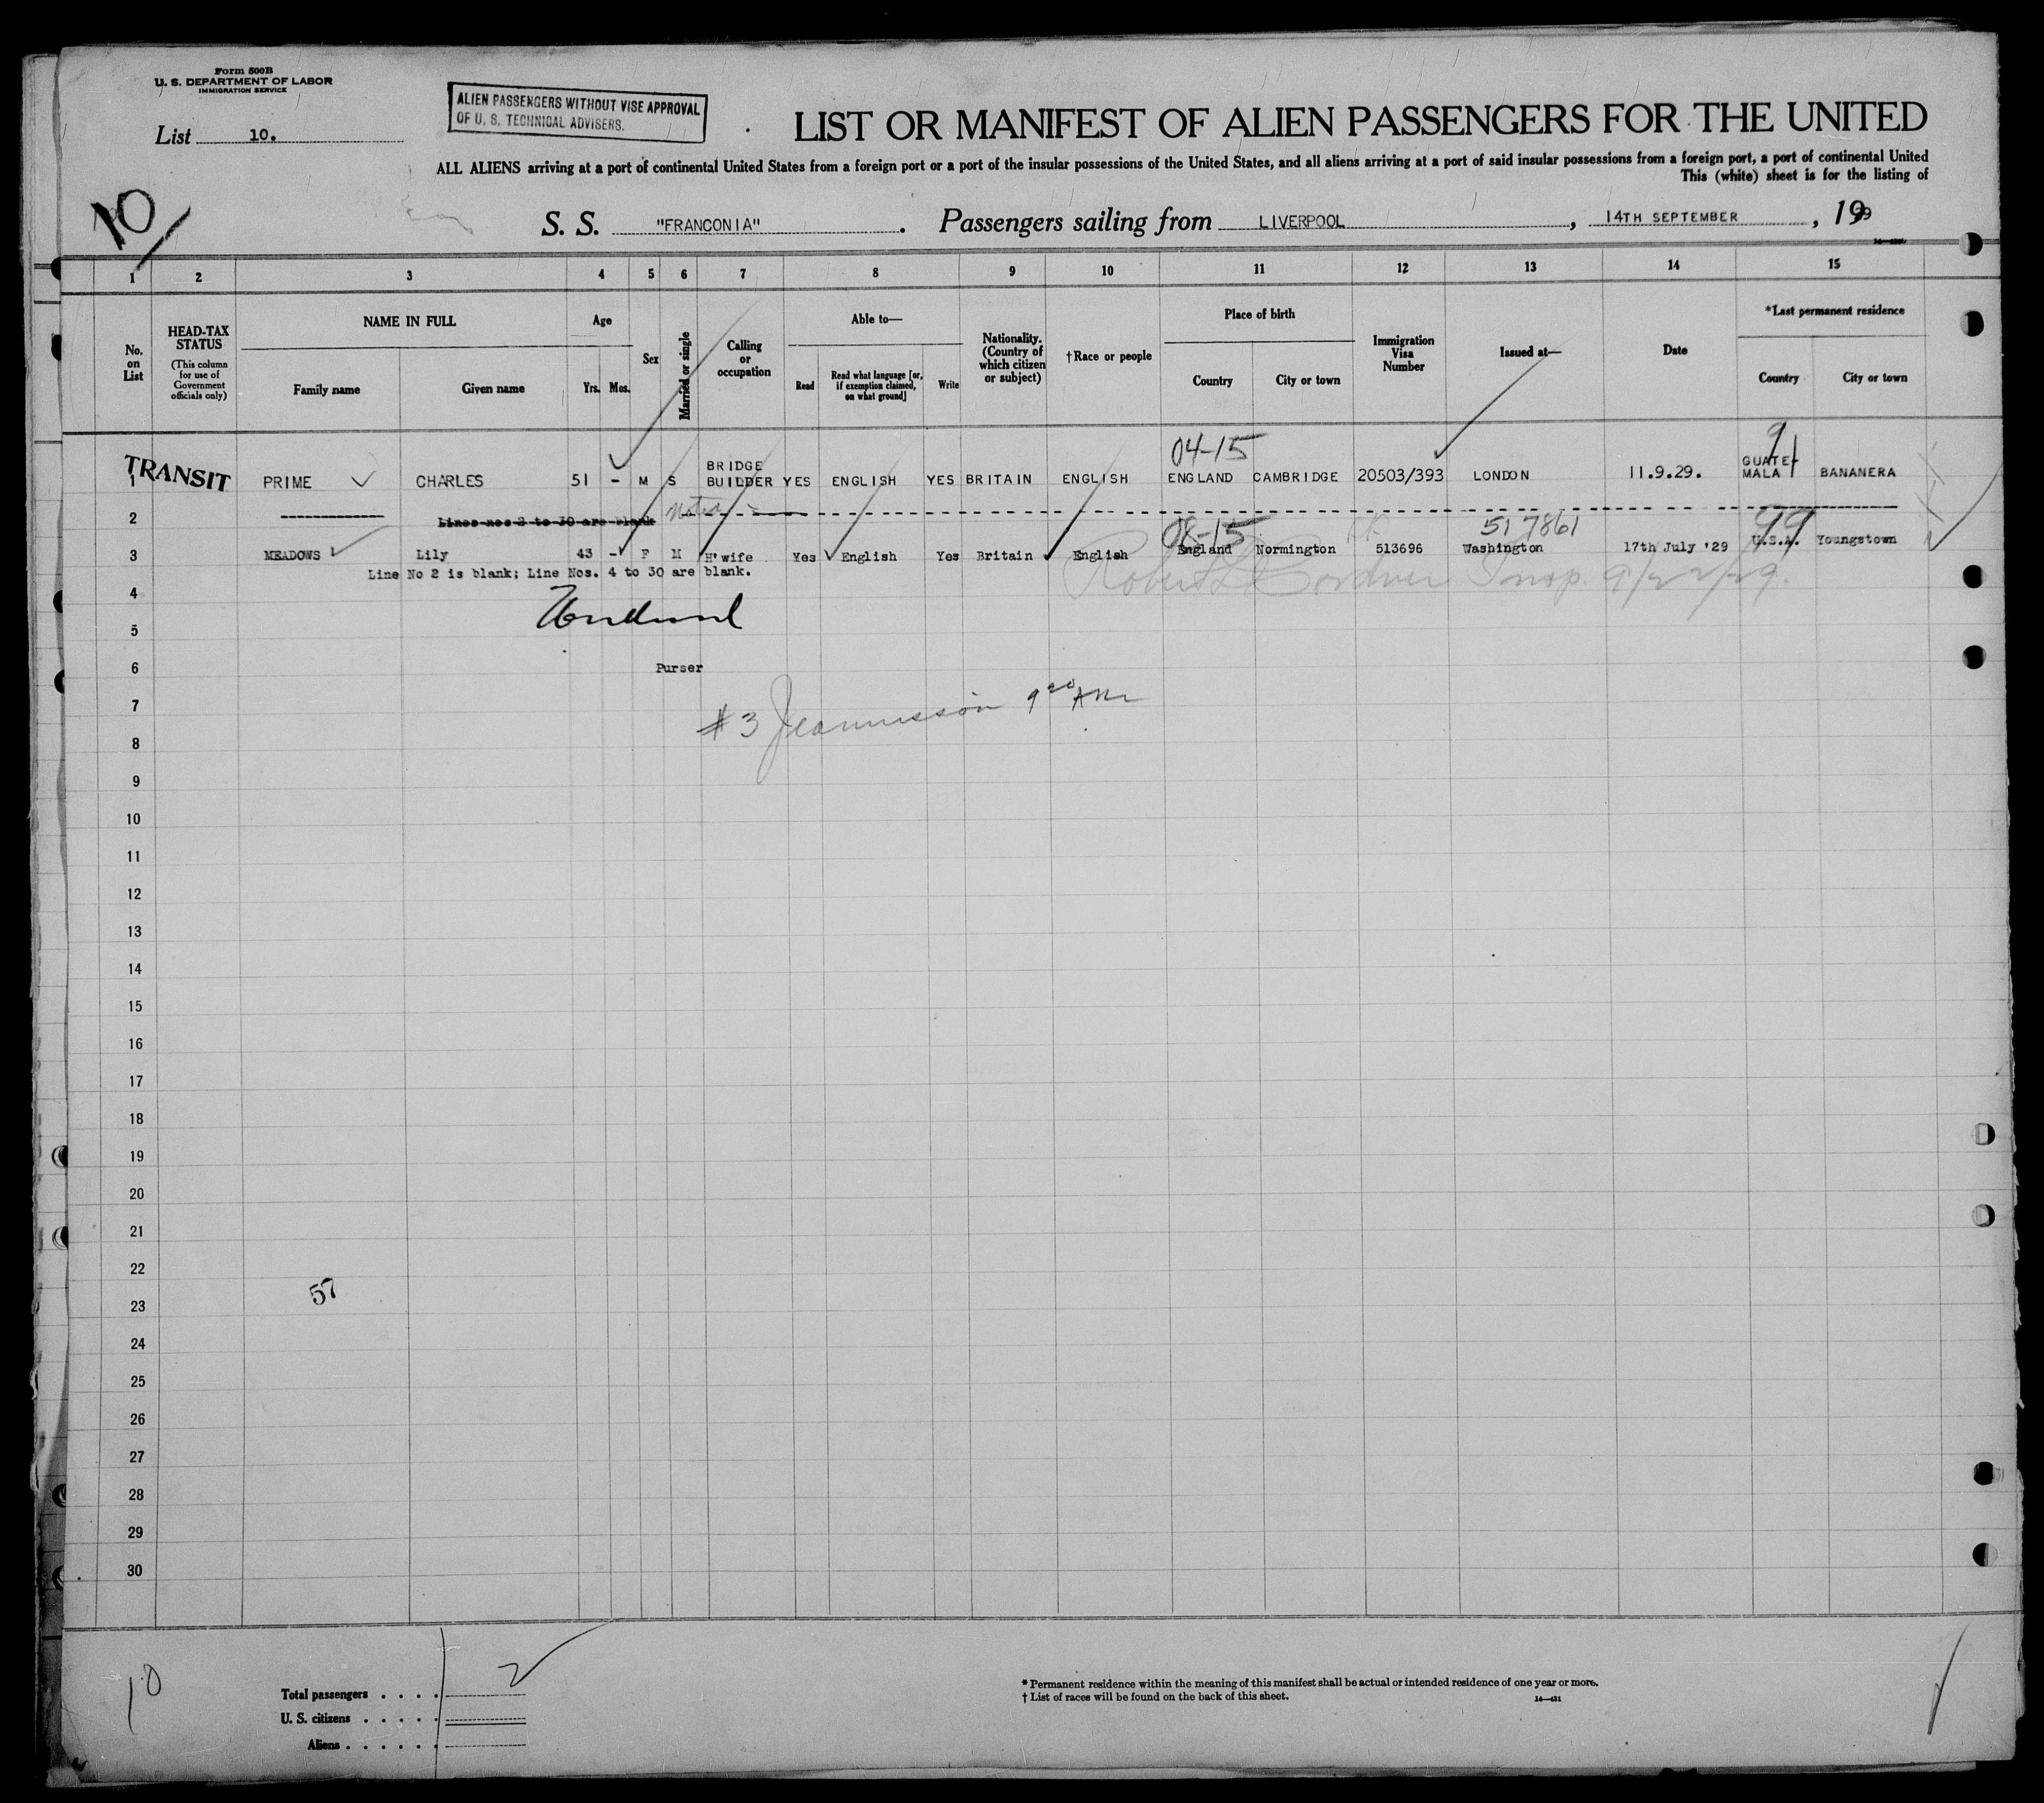 Form 500B
U. S. DEPARTMENT OF LABOR
IMMIGRATION SERVICE
ALIEN PASSENGERS WITHOUT VISE APPROVAL
OF U. S. TECHNICAL ADVISERS.
List 10.
LIST OR MANIFEST OF ALIEN PASSENGERS FOR THE UNITED
ALL ALIENS arriving at a port of continental United States from a foreign port or a port of the insular possessions of the United States, and all aliens arriving at a port of said insular possessions from a foreign port, a port of continental United
This (white) sheet is for the listing of
10
S. S. "FRANCONIA". Passengers sailing from LIVERPOOL, 14TH SEPTEMBER, 19
1 2 3 4 5 6 7 8 9 10 11 12 13 14 15
No. on List
HEAD-TAX STATUS
(This column for use of Government officials only)
NAME IN FULL
Family name Given name
Age
Yrs. Mos.
Sex
Married or single
Calling or occupation
Able to—
Read
Read what language [or, if exemption claimed, on what ground]
Write
Nationality. (Country of which citizen or subject)
†Race or people
Place of birth
Country City or town
Immigration Visa Number
Issued at—
Date
*Last permanent residence
Country City or town
04-15 9
1 TRANSIT PRIME CHARLES 51 - M S BRIDGE BUILDER YES ENGLISH YES BRITAIN ENGLISH ENGLAND CAMBRIDGE 20503/393 LONDON 11.9.29. GUATEMALA BANANERA
2 Lines nos 2 to 30 are blank noted
08-15 517861 99
3 MEADOWS Lily 43 - F M H'wife Yes English Yes Britain English England Normington 513696 Washington 17th July '29 U.S.A. Youngstown
Line No 2 is blank; Line Nos. 4 to 30 are blank.
Insp. 9/22/29.
4
5
6 Purser
7 #3 9 20 AM
8
9
10
11
12
13
14
15
16
17
18
19
20
21
22
57
23
24
25
26
27
28
29
30
10
Total passengers . . . . 2
U. S. citizens . . . . .
Aliens . . . . . .
* Permanent residence within the meaning of this manifest shall be actual or intended residence of one year or more.
† List of races will be found on the back of this sheet.
14—431